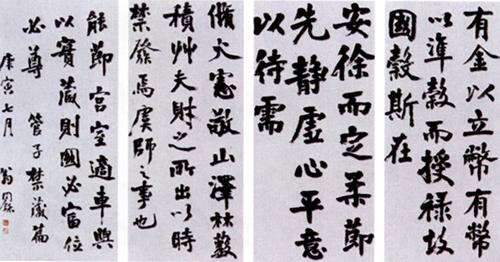 有金以立幣有幣
以準穀而授禄故
國穀斯在
安徐而定柔節
先静虚心平意
以待需
脩火憲敬山澤林藪
積艸夫財之所出以時
禁發焉虞師之事也
能節宮室適車輿
以實藏則國必富位
必尊 管子禁藏篇
庚寅七月 翁同龢